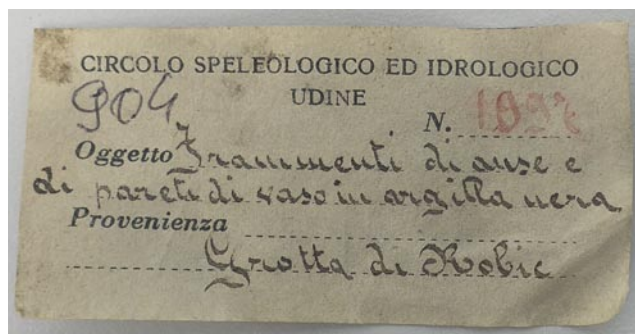 CIRCOLO SPELEOLOGICO ED IDROLOGICO
UDINE
904
N. 1097
Oggetto Frammenti di anse e
di pareti di vaso in argilla nera
Provenienza
Grotta di Robic